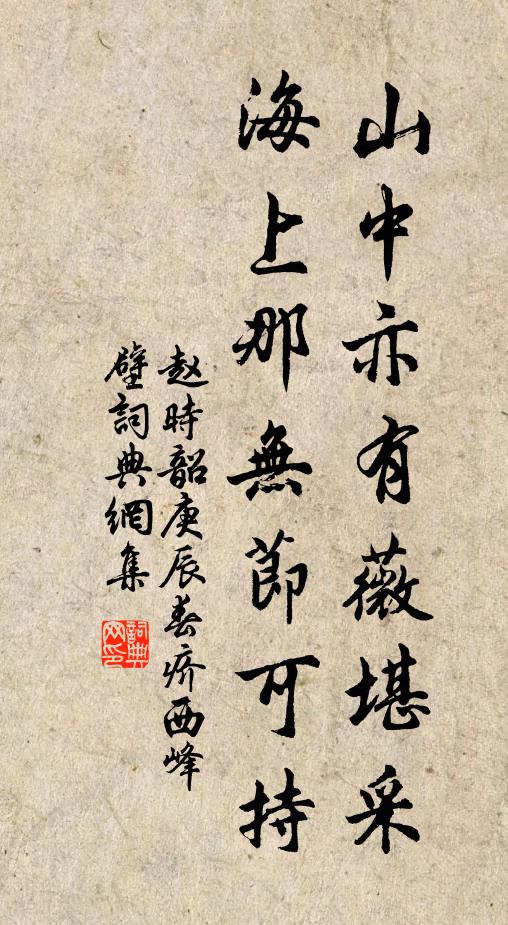 山中亦有薇堪采
海上那無節可持
赵時韶庚辰春疥西峰
壁詞典網集
詞典
网印